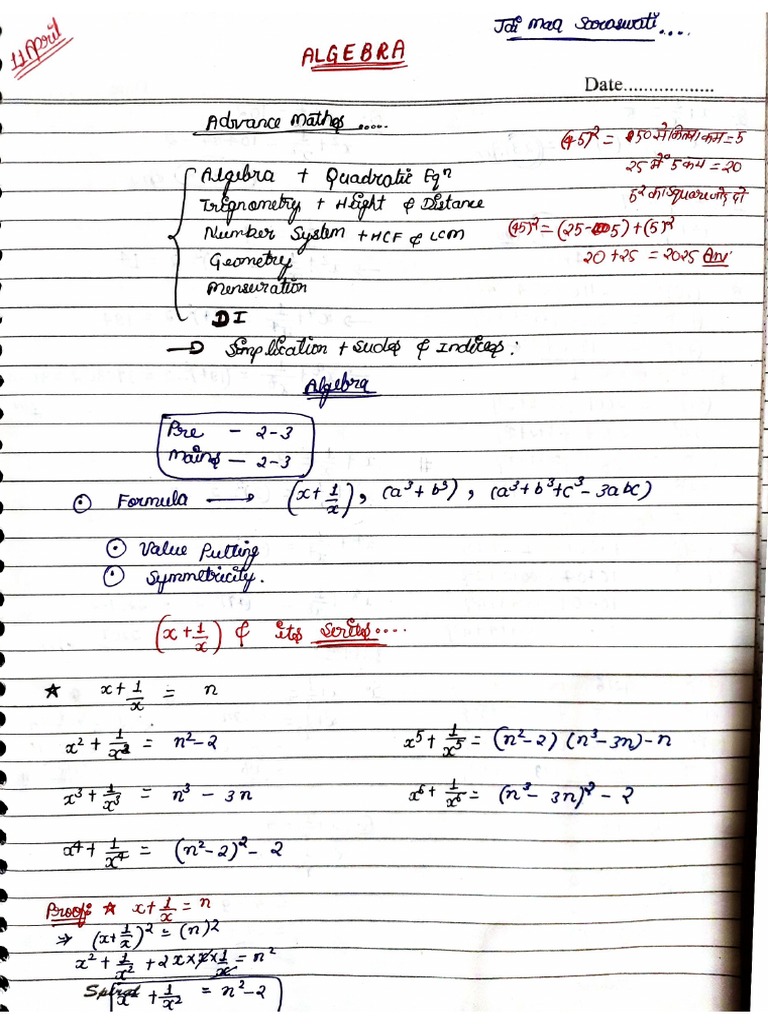 11 April
Jai Maa Saraswati....
ALGEBRA
Date..................
Advance Maths .....
(45)² = 50 से कितना कम = 5
25 में 5 कम = 20
5² का square जोड़ दो
(45)² = (25-5) + (5)²
20 + 25 = 2025 Ans
Algebra + Quadratic Eqⁿ
Trignometry + Height & Distance
Number System + HCF & LCM
Geometry
Mensuration
DI
→ Simplication + Surds & Indices:
Algebra
Pre - 2-3
Mains - 2-3
⊙ Formula → (x + 1/x), (a³ + b³), (a³ + b³ + c³ - 3abc)
⊙ Value Putting
⊙ Symmetricity.
(x + 1/x) & its Series....
★ x + 1/x = n
x² + 1/x² = n² - 2
x³ + 1/x³ = n³ - 3n
x⁴ + 1/x⁴ = (n² - 2)² - 2
x⁵ + 1/x⁵ = (n² - 2) (n³ - 3n) - n
x⁶ + 1/x⁶ = (n³ - 3n)² - 2
Proof: ★ x + 1/x = n
⇒ (x + 1/x)² = (n)2
x² + 1/x² + 2 x x x 1/x = n²
x² + 1/x² = n² - 2
Spiral